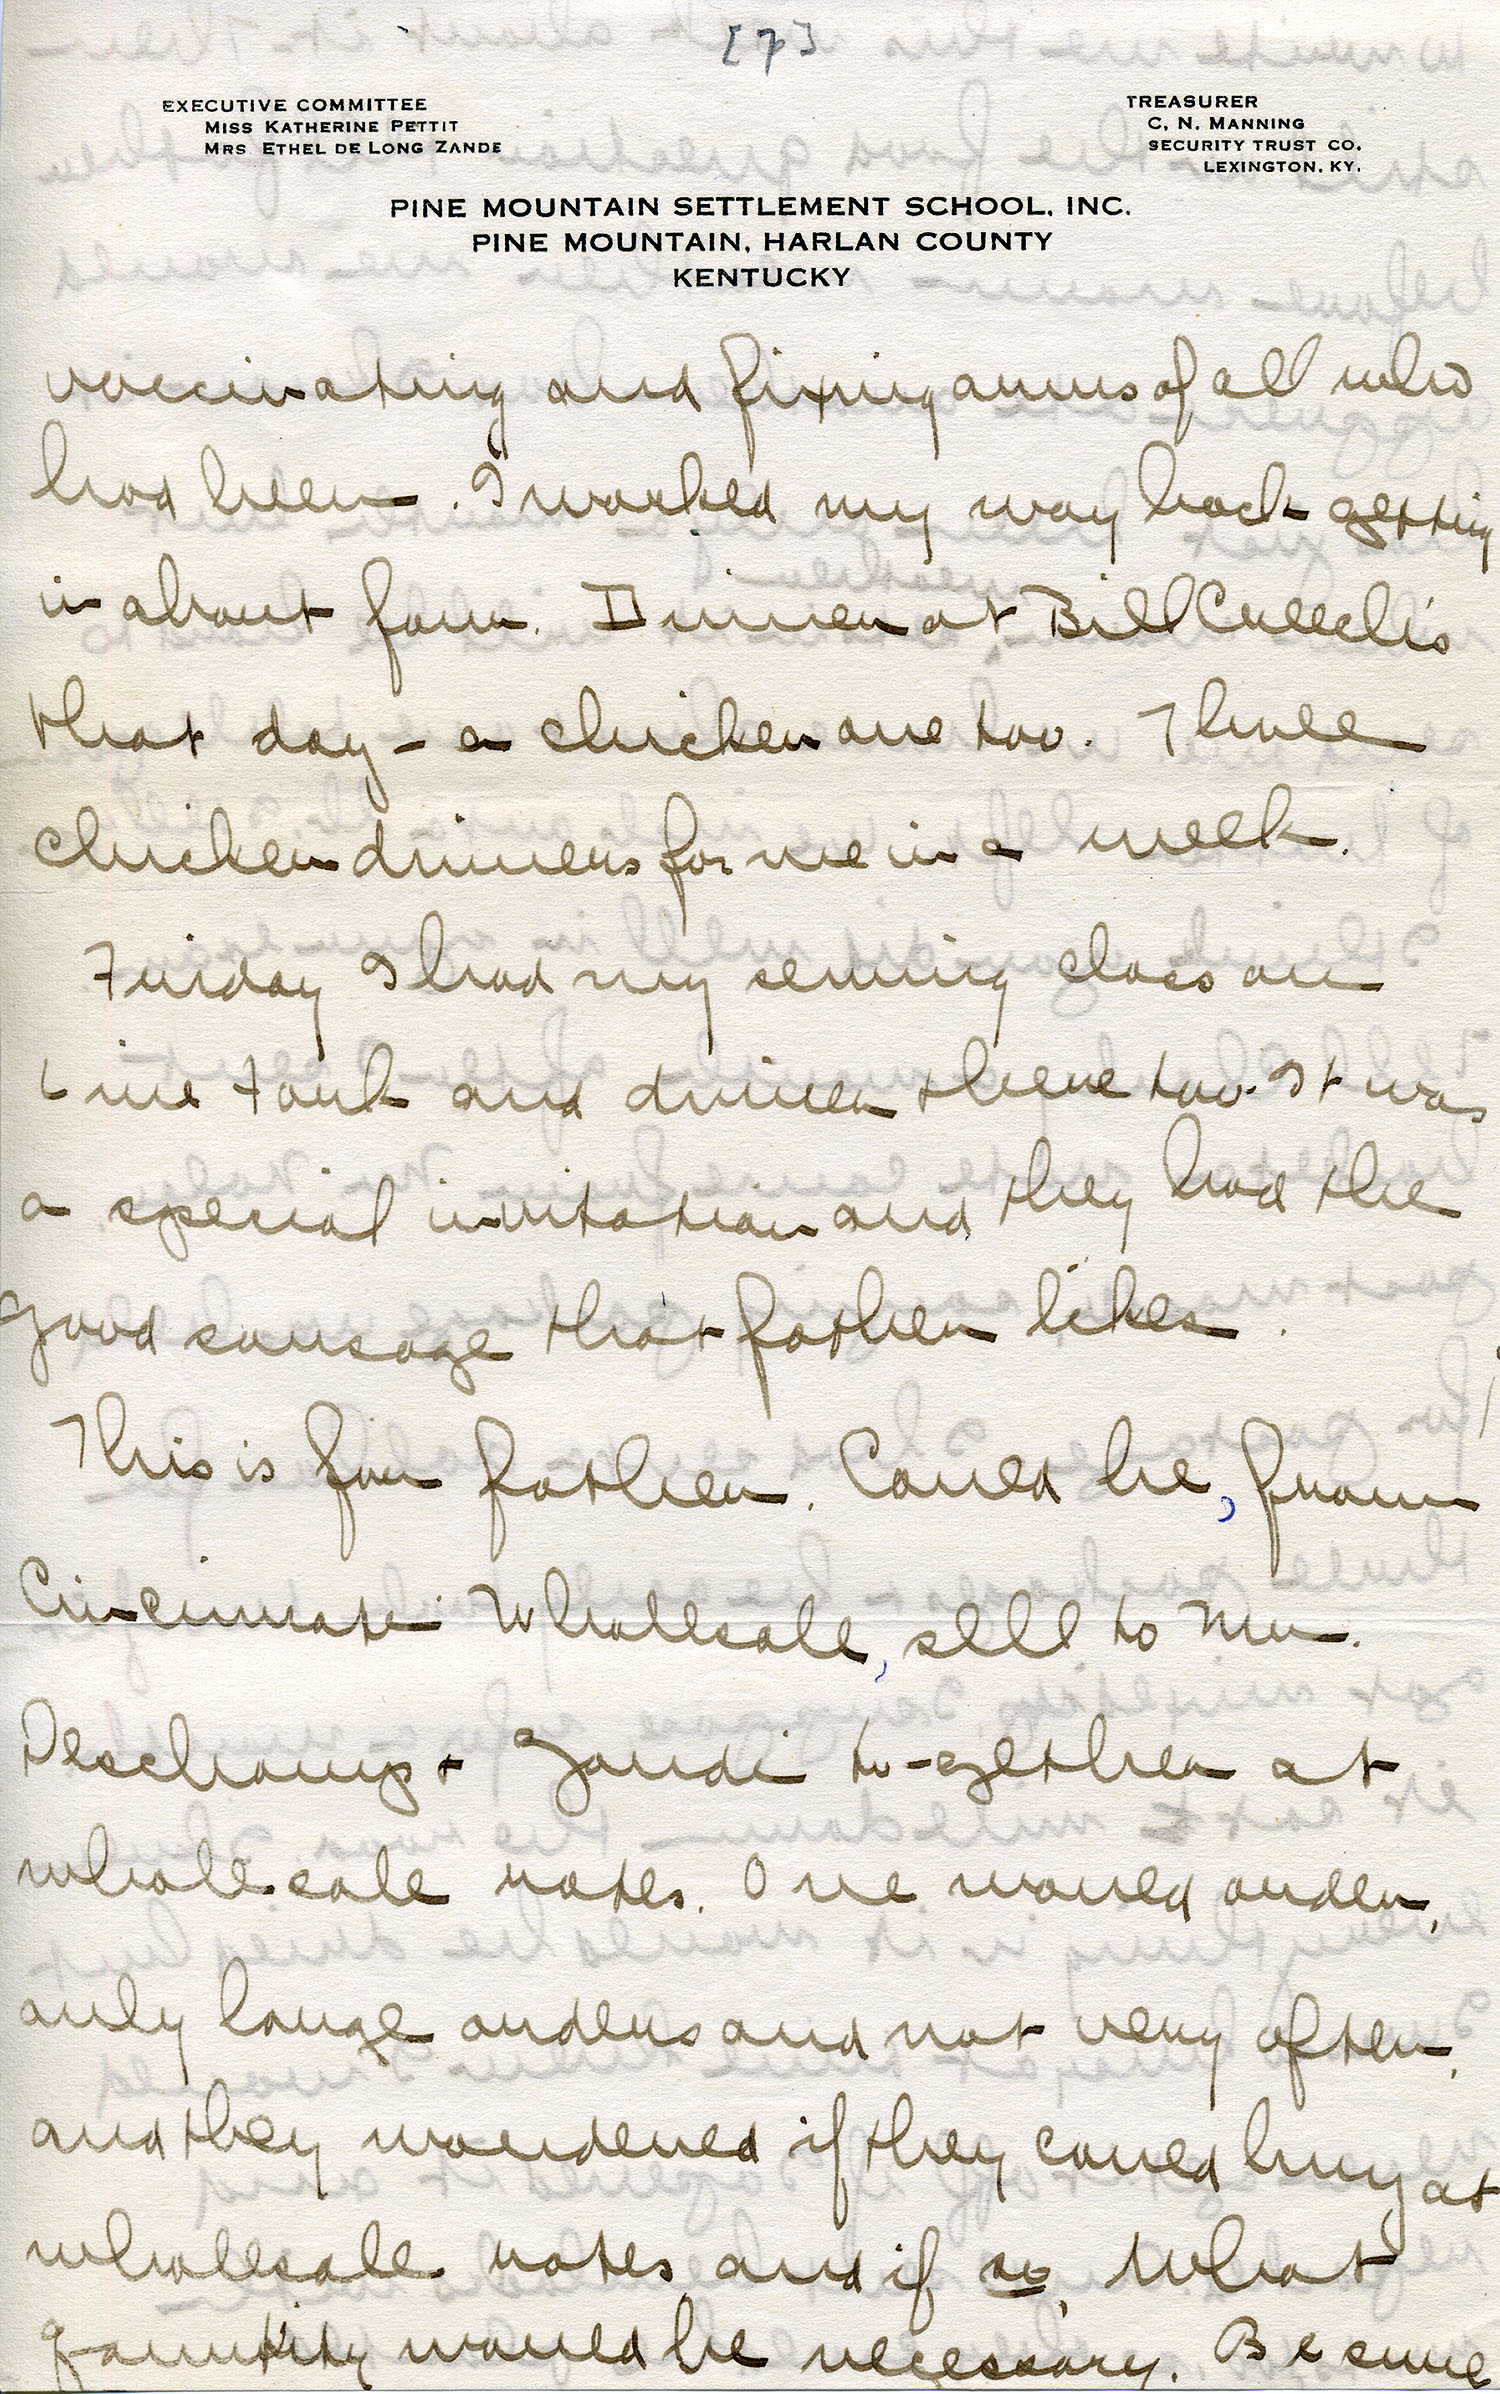 [7]
EXECUTIVE COMMITTEE
MISS KATHERINE PETTIT
MRS ETHEL DE LONG ZANDE
TREASURER
C. N. MANNING
SECURITY TRUST CO.
LEXINGTON, KY.
PINE MOUNTAIN SETTLEMENT SCHOOL, INC.
PINE MOUNTAIN, HARLAN COUNTY
KENTUCKY
vaccinating and fixing arms of all who
had been. I worked my way back getting
in about four. Dinner at Bill Creech's
that day - a chicken one too. Three
chicken dinners for me in a week.
Friday I had my sewing class on
Line Fork and dinner there too. It was
a special invitation and they had the
good sausage that father likes.
This is for father. Could he, from
Cincinnati Wholesale, sell to Mr.
Deschamps + Zande to-gether at
wholesale rates. One would order,
only large orders and not very often,
and they wondered if they could buy at
wholesale rates and if so, what
quantity would be necessary. Be sure